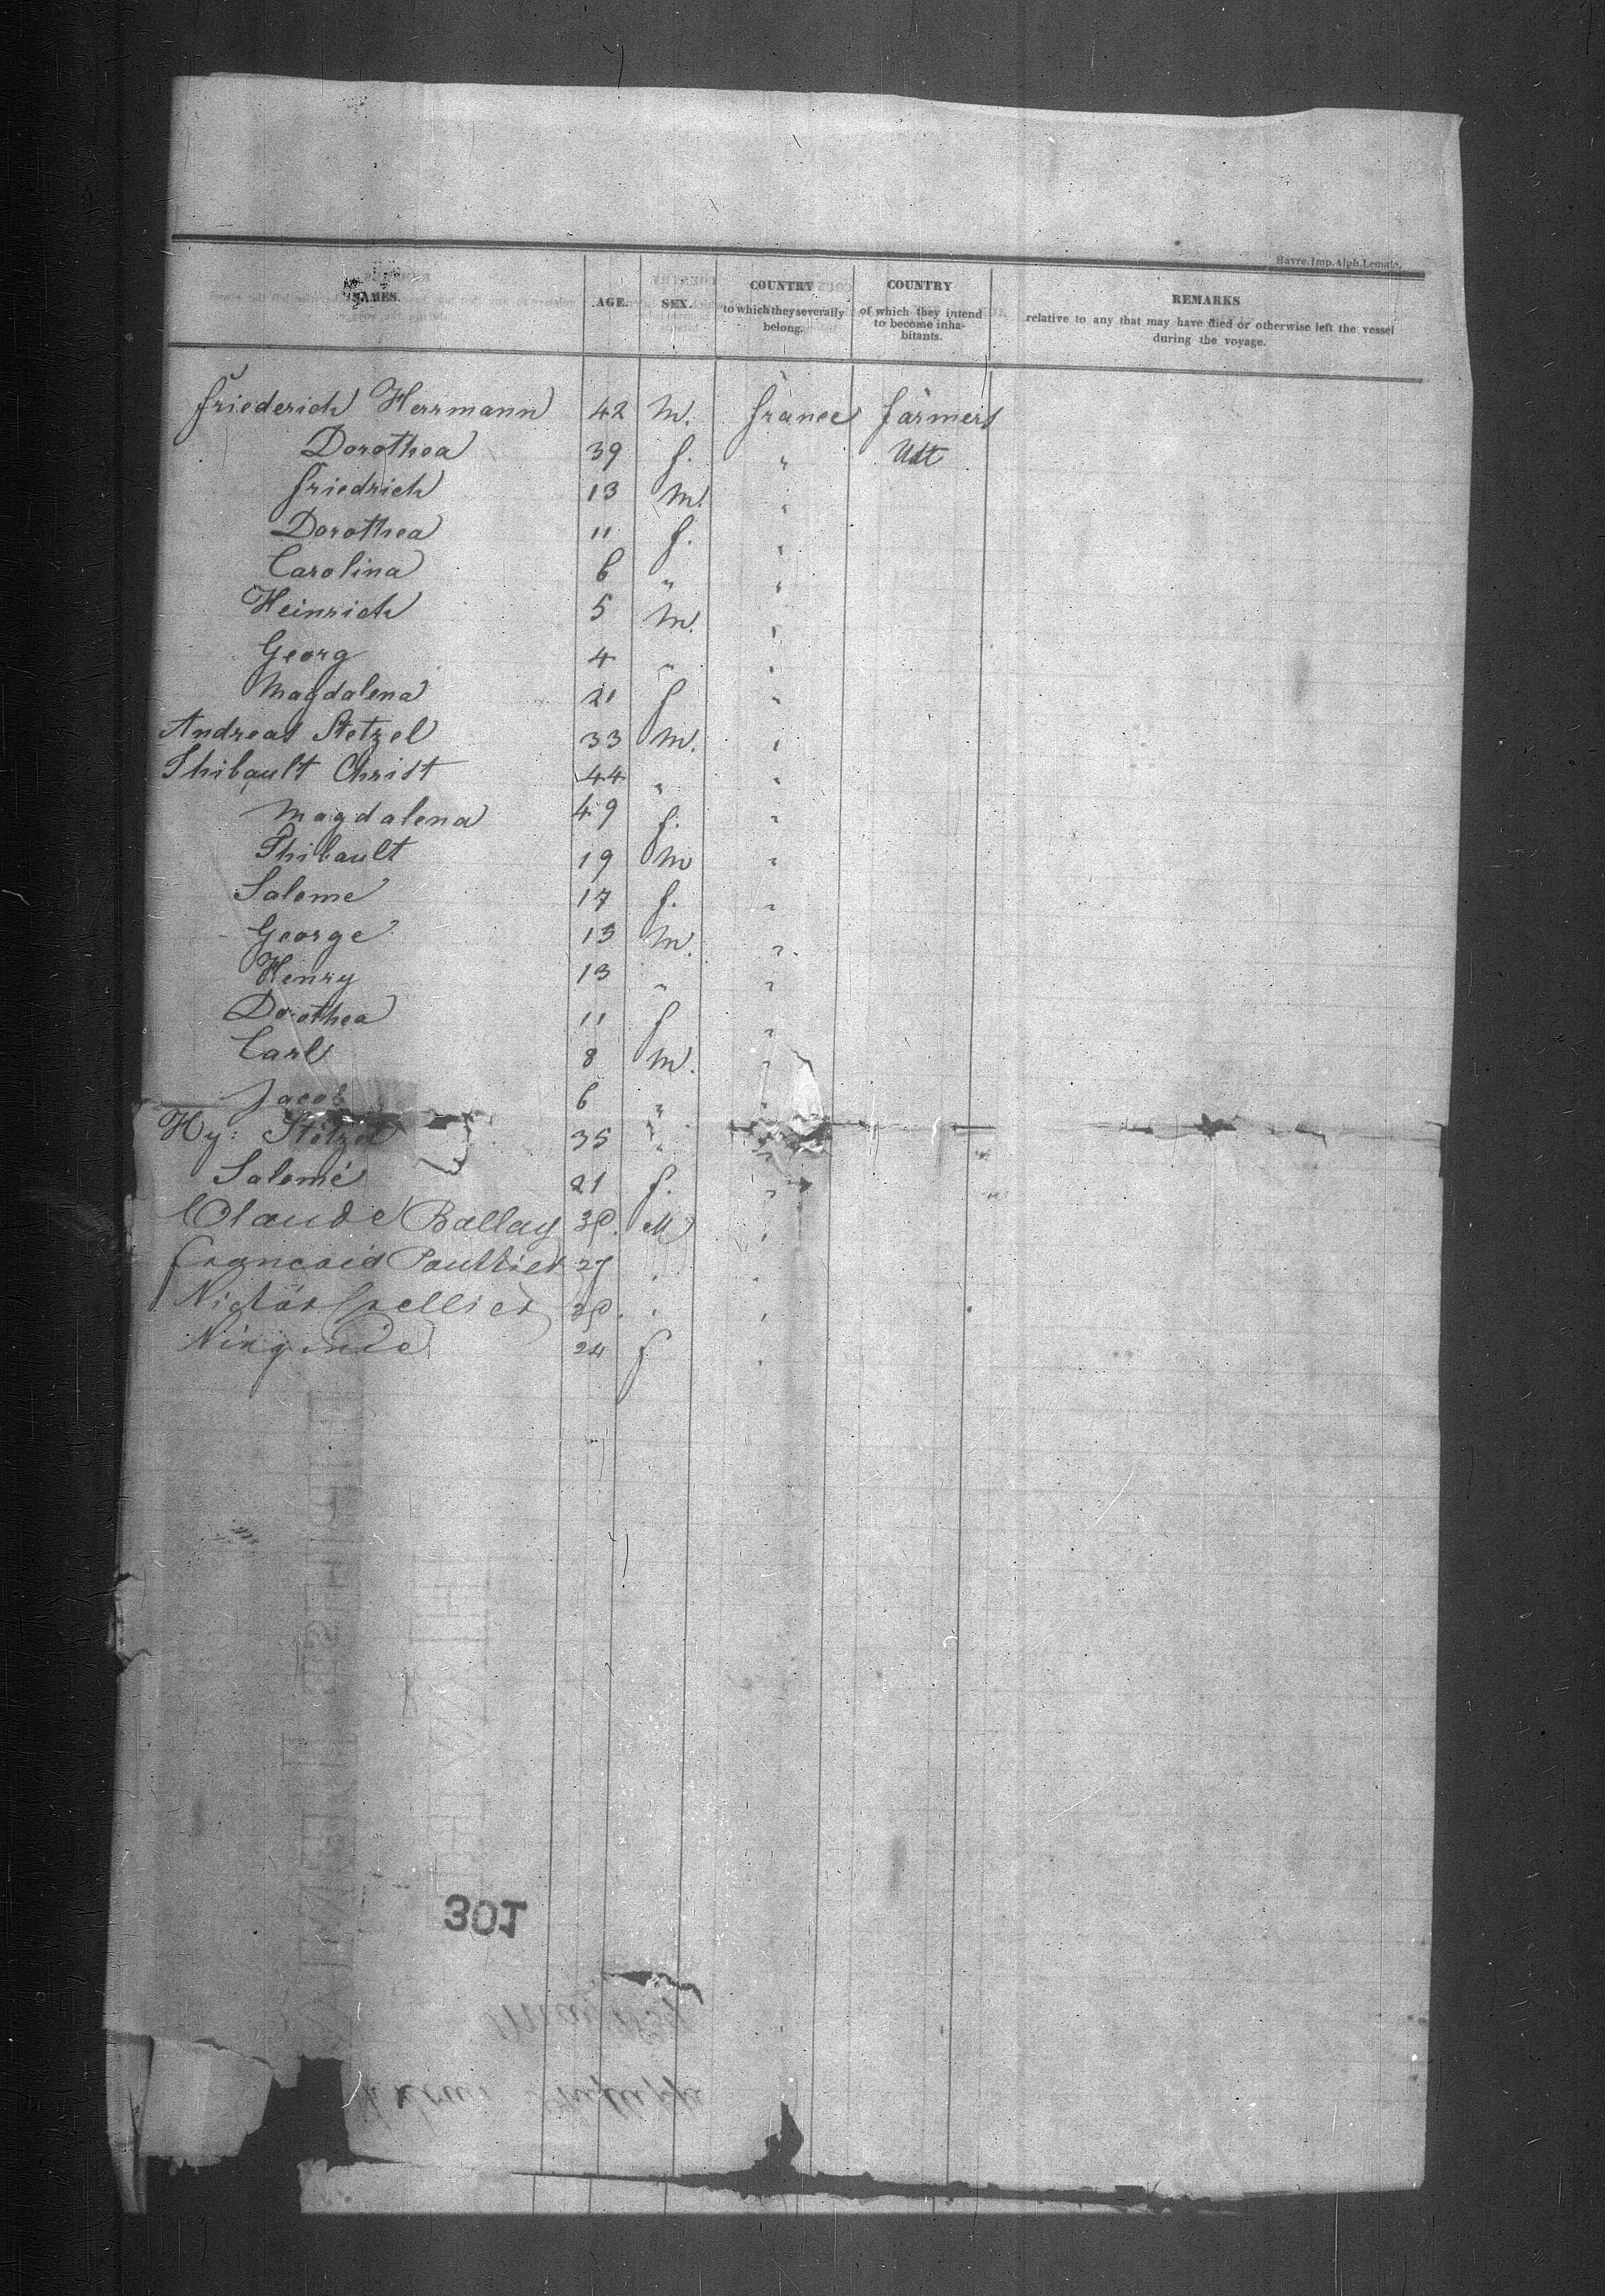 Havre. Imp. Alph. Lemale.
NAMES. AGE. SEX. COUNTRY to which they severally belong. COUNTRY of which they intend to become inha-bitants. REMARKS relative to any that may have died or otherwise left the vessel during the voyage.
Friederich Herrmann 42 M. France farmers
Dorothea 39 f. "
Friedrich 13 M. "
Dorothea 11 f. "
Carolina 6 " "
Heinrich 5 M. "
Georg 4 " "
Magdalena 21 f "
Andreas Stetzel 33 M. "
Thibault Christ 44 " "
Magdalena 49 f. "
Thibault 19 M "
Salome 17 f. "
George 15 M. "
Henry 13 " "
Dorothea 11 f "
Carl 8 M. "
Jacob 6 " "
Hy: Stetzel 35 " "
Salomé 21 f. "
Claude Ballay 30. M "
Francois Paulhier 27 " "
Victor 30. " "
Virginie 24 f "
301